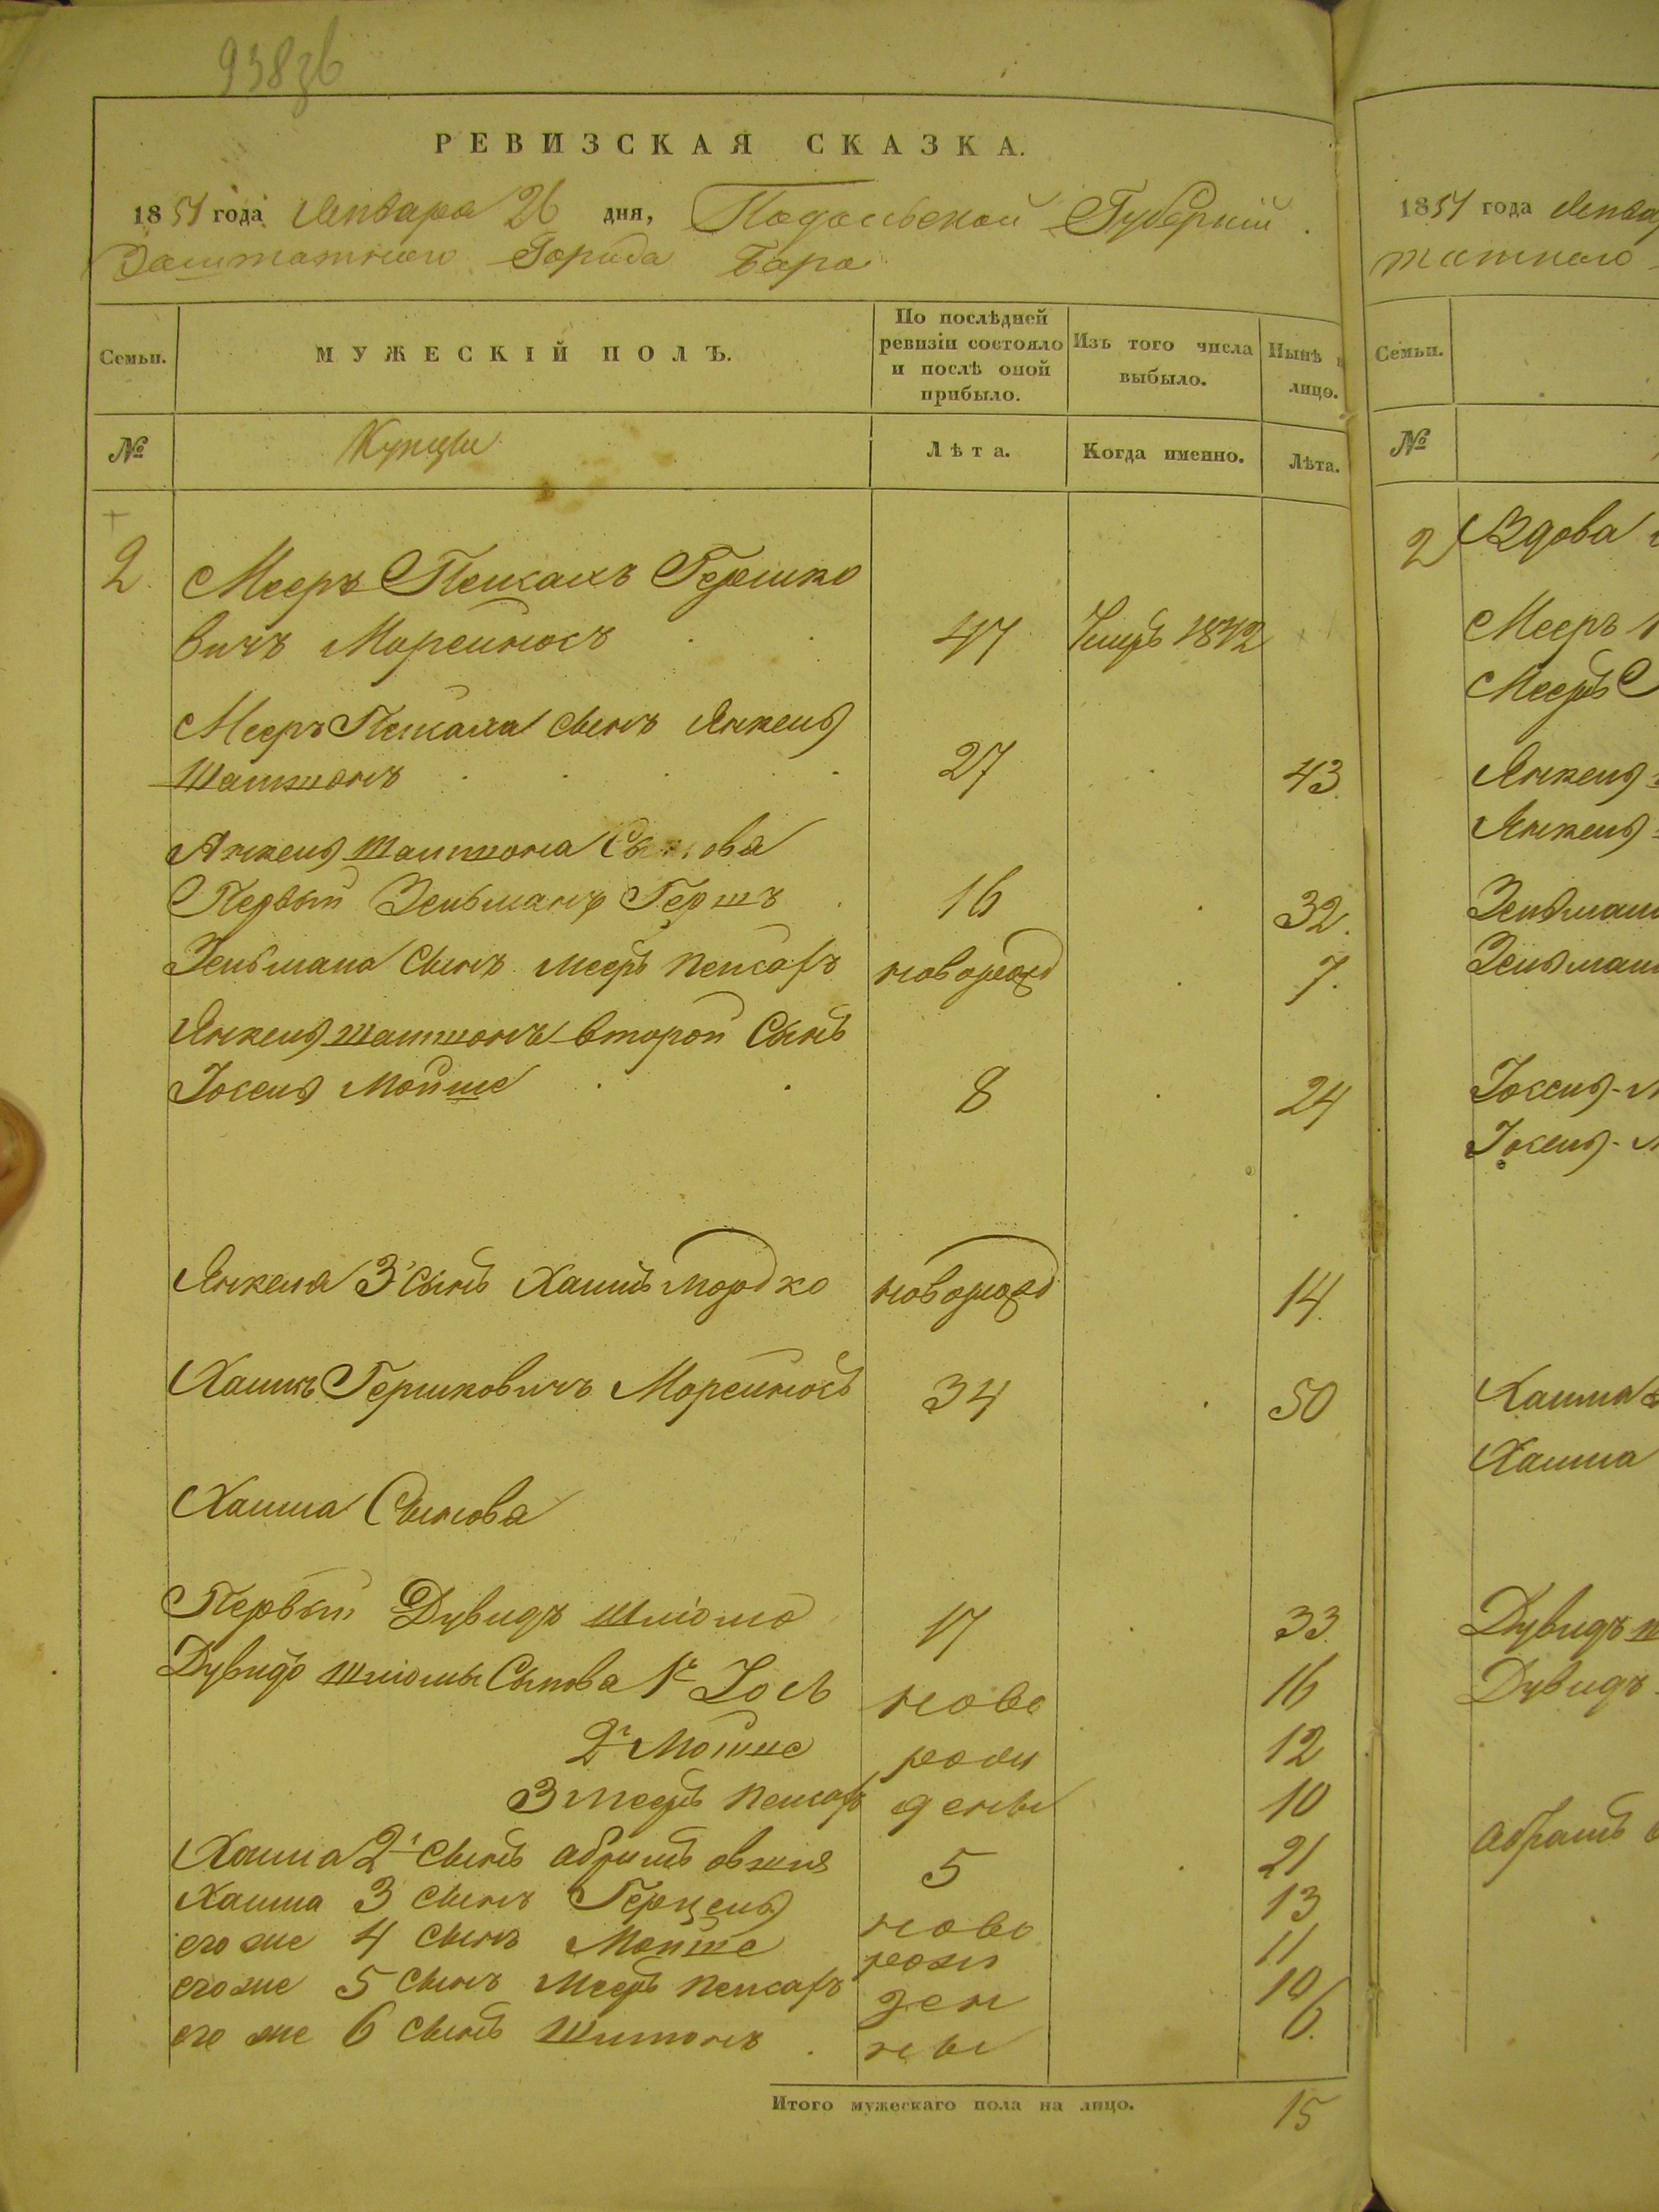 938зв
РЕВИЗСКАЯ СКАЗКА.
1851 года Января 26 дня, Подольской Губерніи
Заштатного Города Бара
Семьи.
МУЖЕСКІЙ ПОЛЪ.
По послѣдней ревизіи состояло и послѣ оной прибыло.
Изъ того числа выбыло.
Нынѣ
лицо.
№
Купцы
Лѣта.
Когда именно.
Лѣта.
2. Мееръ Пейсахъ Гершко
вичъ Марейносъ 47 Умеръ 1842
Мееръ Пейсаха сынъ Янкель
Шапшонъ 27 43.
Янкель Шапшона Сынова
Первый Зельманъ Гершъ 16 32.
Зельмана Сынъ Мееръ Пейсахъ новорожд 7.
Янкель Шапшонъ второй Сынъ
Іосель Мойше 8 24
Янкеля 3й Сынъ Хаимъ Мордко новорожд 14.
Хаимъ Гершковичъ Марейносъ 34 50
Хаима Сынова
Первый Дувидъ Шліома 17 33.
Дувидъ Шліомы Сынова 1й Іось ново 16
2й Мойше рож 12
3 Мееръ Пейсахъ дены 10
Хаима 2й Сынъ Абрамъ Овшія 5 21
Хаима 3 сынъ Герцель ново 13
его же 4 сынъ Мойше рож 11
его же 5 сынъ Мееръ Пейсахъ ден 10
его же 6 сынъ Шимонъ ны 6.
Итого мужескаго пола на лицо. 15
1851 года
татного
Семьи.
№
2 Вдова
Мееръ
Мееръ
Янкель
Янкель
Зельман
Зельман
Іосель-М
Іосель-М
Хаима
Хаима
Дувидъ
Дувидъ
Абрамъ